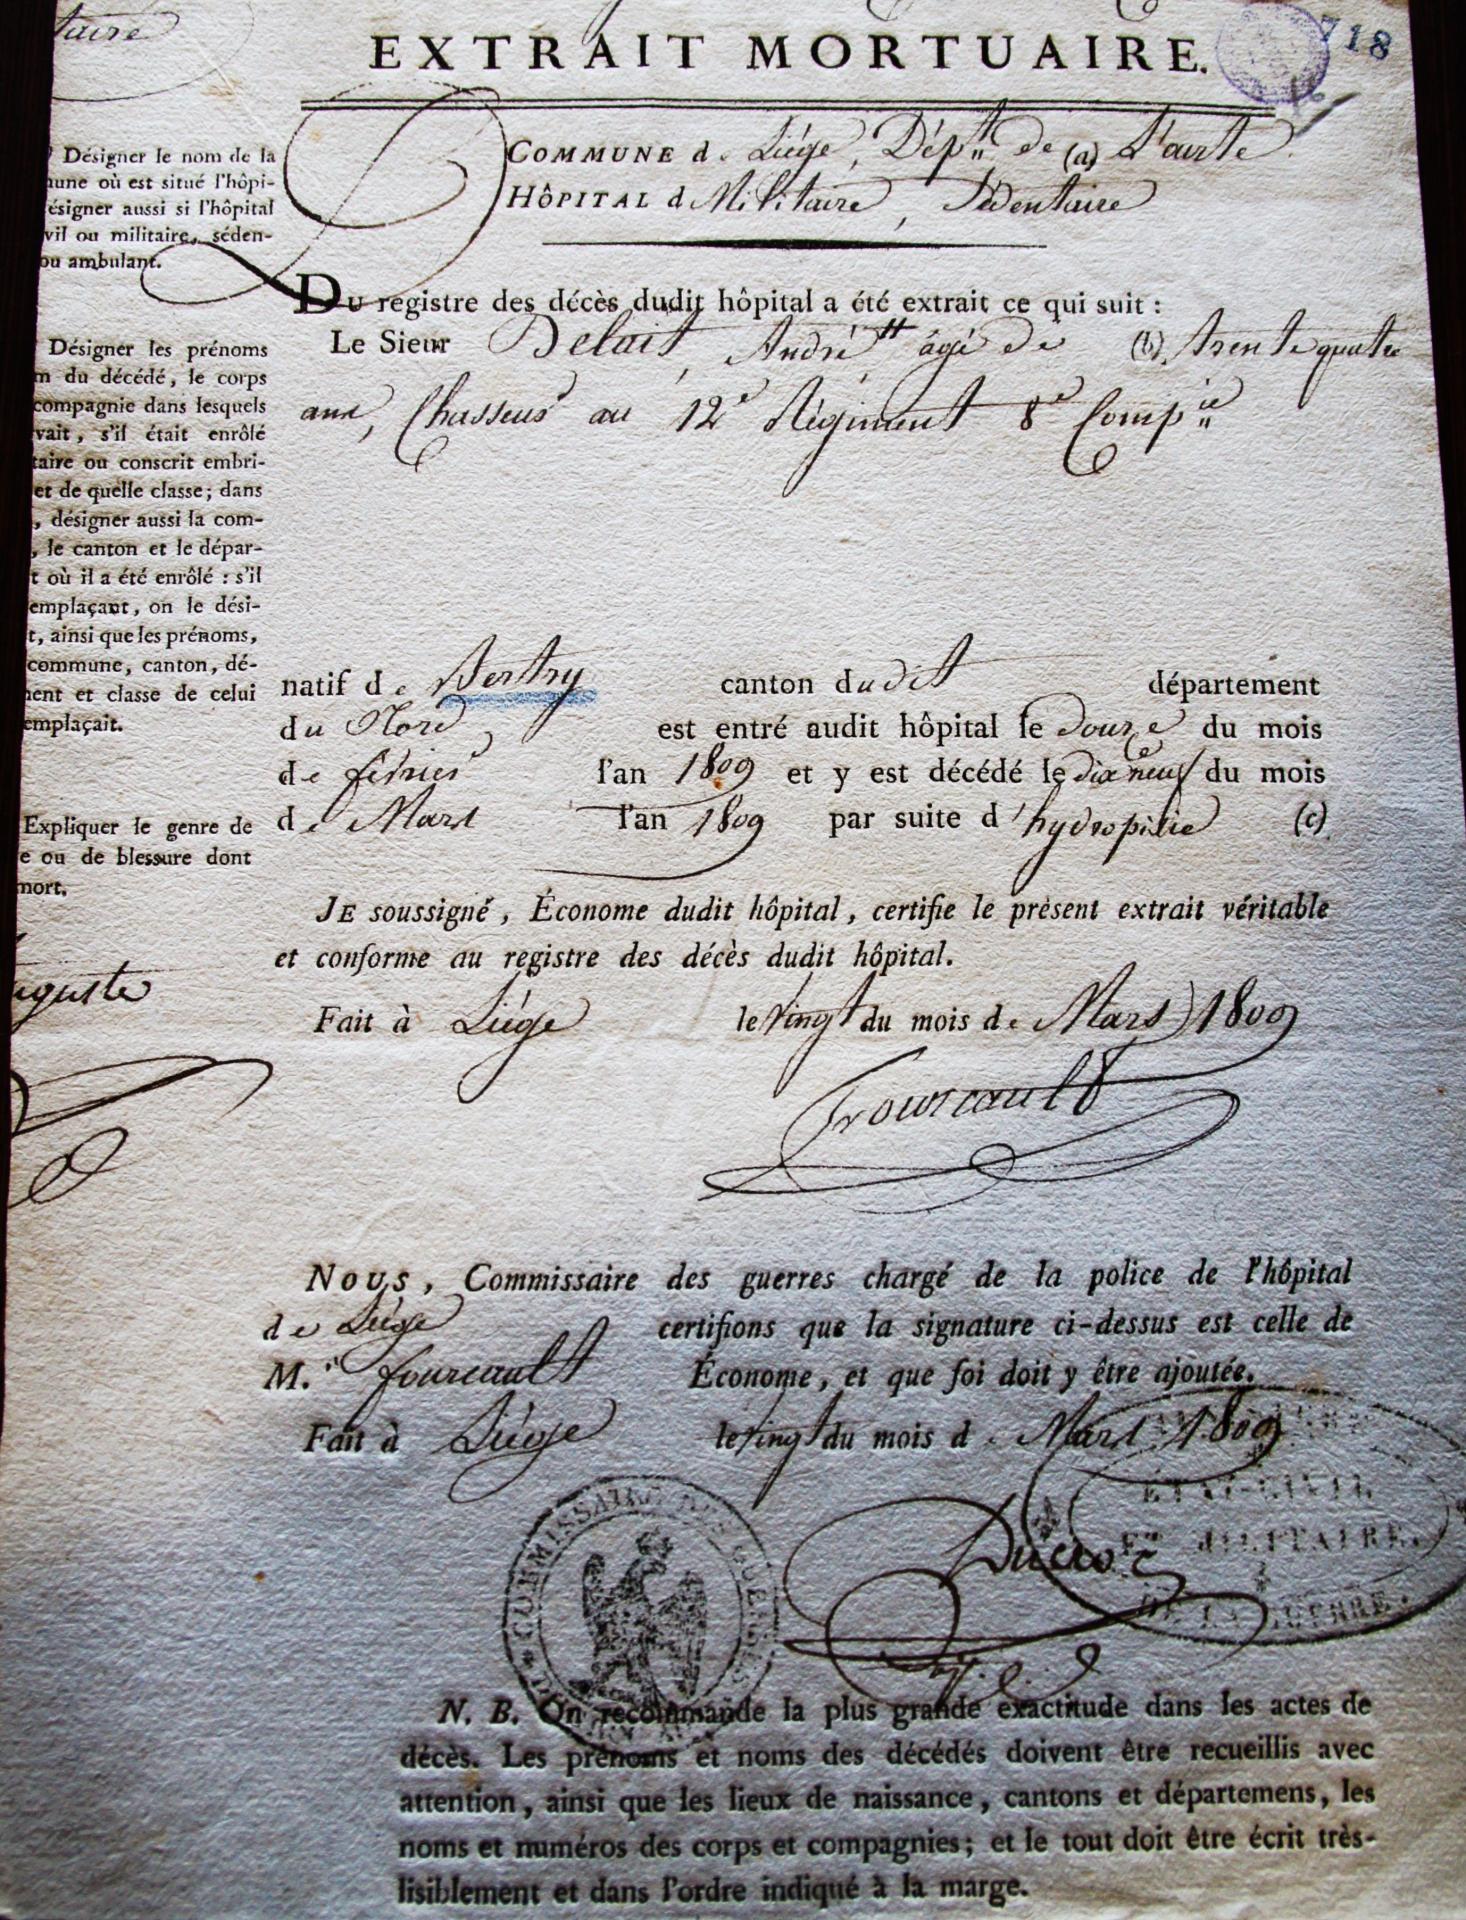 taire
EXTRAIT MORTUAIRE.
718
COMMUNE de Liége, Dépt. de (a) L'ourte
HÔPITAL d Militaire, Sédentaire
Désigner le nom de la
mune où est situé l'hôpi-
ésigner aussi si l'hôpital
vil ou militaire, séden-
ou ambulant.
Du registre des décès dudit hôpital a été extrait ce qui suit :
Le Sieur Delait, André âgé de (b) trente quatre
ans, Chasseur au 12e Régiment 8e Compie
Désigner les prénoms
m du décédé, le corps
compagnie dans lesquels
vait, s'il était enrôlé
taire ou conscrit embri-
et de quelle classe; dans
, désigner aussi la com-
, le canton et le dépar-
t où il a été enrôlé : s'il
emplaçant, on le dési-
t, ainsi que les prénoms,
commune, canton, dé-
ment et classe de celui
emplaçait.
natif de Bertry canton dudit département
du Nord est entré audit hôpital le douze du mois
de février l'an 1809 et y est décédé le dix neuf du mois
de Mars l'an 1809 par suite d'hydropisie (c)
Expliquer le genre de
e ou de blessure dont
mort.
JE soussigné, Économe dudit hôpital, certifie le présent extrait véritable
et conforme au registre des décès dudit hôpital.
uguste
Fait à Liége le vingt du mois de Mars 1809
Fourcault
NOUS, Commissaire des guerres chargé de la police de l'hôpital
de Liége certifions que la signature ci-dessus est celle de
M.r fourcault Économe, et que foi doit y être ajoutée.
Fait à Liége le vingt du mois de Mars 1809
COMMISSAIRE DES GUERRES
Ducros
ETAT-CIVIL
ET MILITAIRE.
DE LA GUERRE.
N. B. On recommande la plus grande exactitude dans les actes de
décès. Les prénoms et noms des décédés doivent être recueillis avec
attention, ainsi que les lieux de naissance, cantons et départemens, les
noms et numéros des corps et compagnies; et le tout doit être écrit très-
lisiblement et dans l'ordre indiqué à la marge.